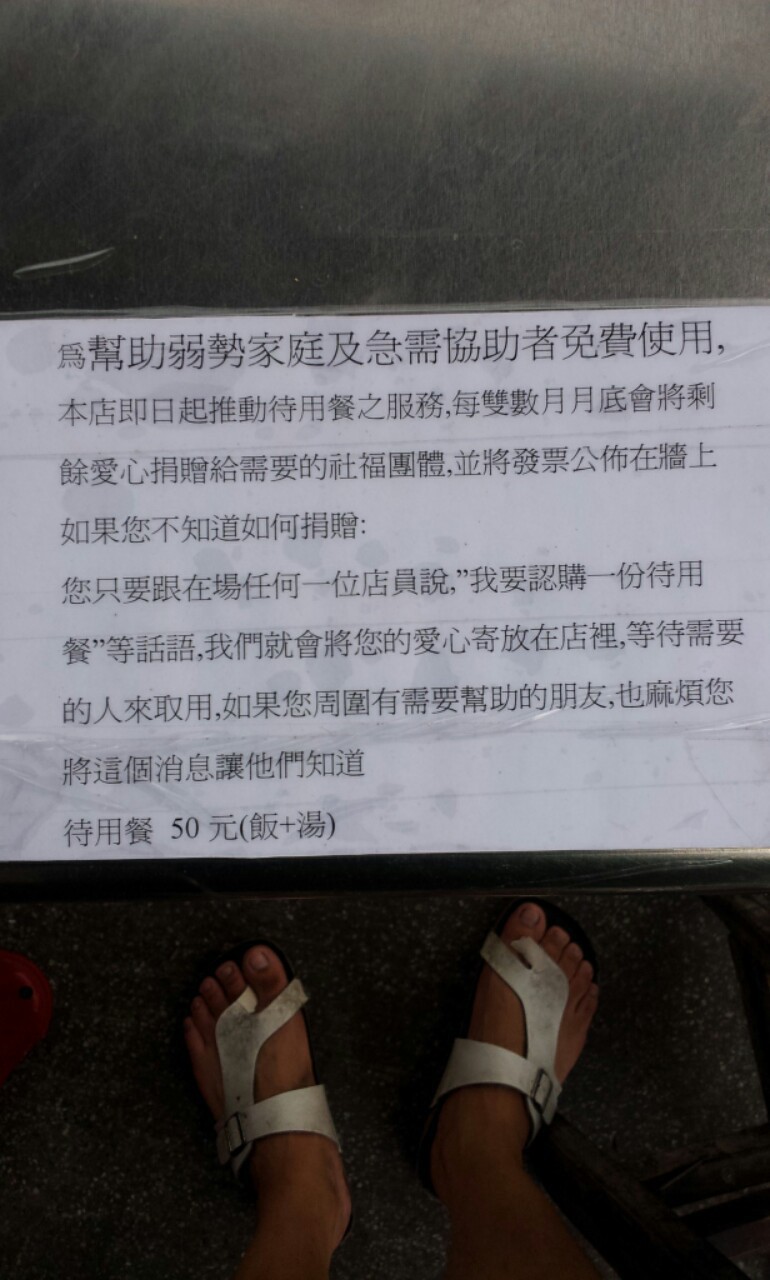 爲幫助弱勢家庭及急需協助者免費使用,
本店即日起推動待用餐之服務,每雙數月月底會將剩
餘愛心捐贈給需要的社福團體,並將發票公佈在牆上
如果您不知道如何捐贈:
您只要跟在場任何一位店員說,”我要認購一份待用
餐”等話語,我們就會將您的愛心寄放在店裡,等待需要
的人來取用,如果您周圍有需要幫助的朋友,也麻煩您
將這個消息讓他們知道
待用餐 50 元(飯+湯)